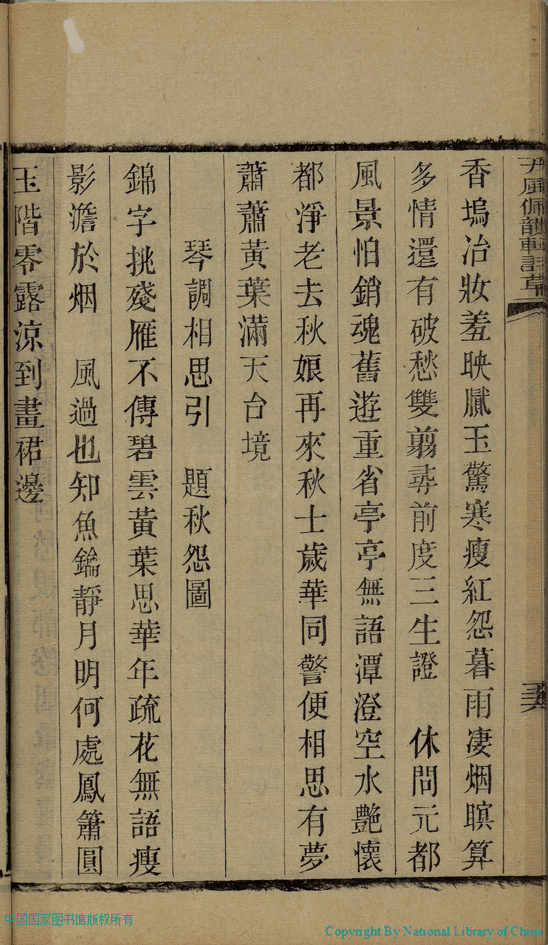 香塢冶妝羞映膩玉驚寒瘦紅怨暮雨凄烟暝算
多情還有破愁雙翦尋前度三生證　休問元都
風景怕銷魂舊遊重省亭亭無語潭澄空水艷懷
都淨老去秋娘再來秋士歲華同警便相思有夢
蕭蕭黃葉滿天台境
琴調相思引　題秋怨圖
錦字挑殘雁不傳碧雲黃葉思華年疏花無語瘦
影澹於烟　風過也知魚鑰靜月明何處鳳簫圓
玉階零露涼到畫裙邊
中国国家图书馆版权所有
Copyright By National Library of China